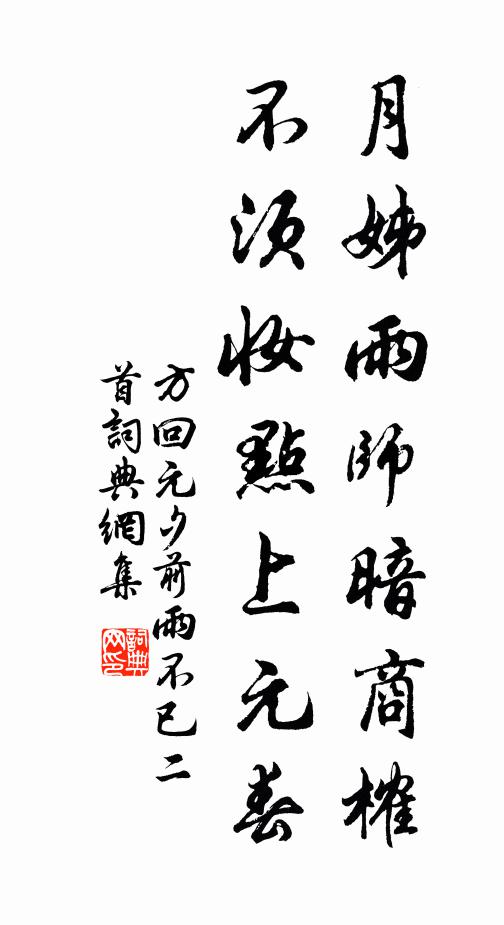 月姊雨師暗商榷
不須妝點上元春
方回元夕前雨不已二
首詞典網集
詞典网印